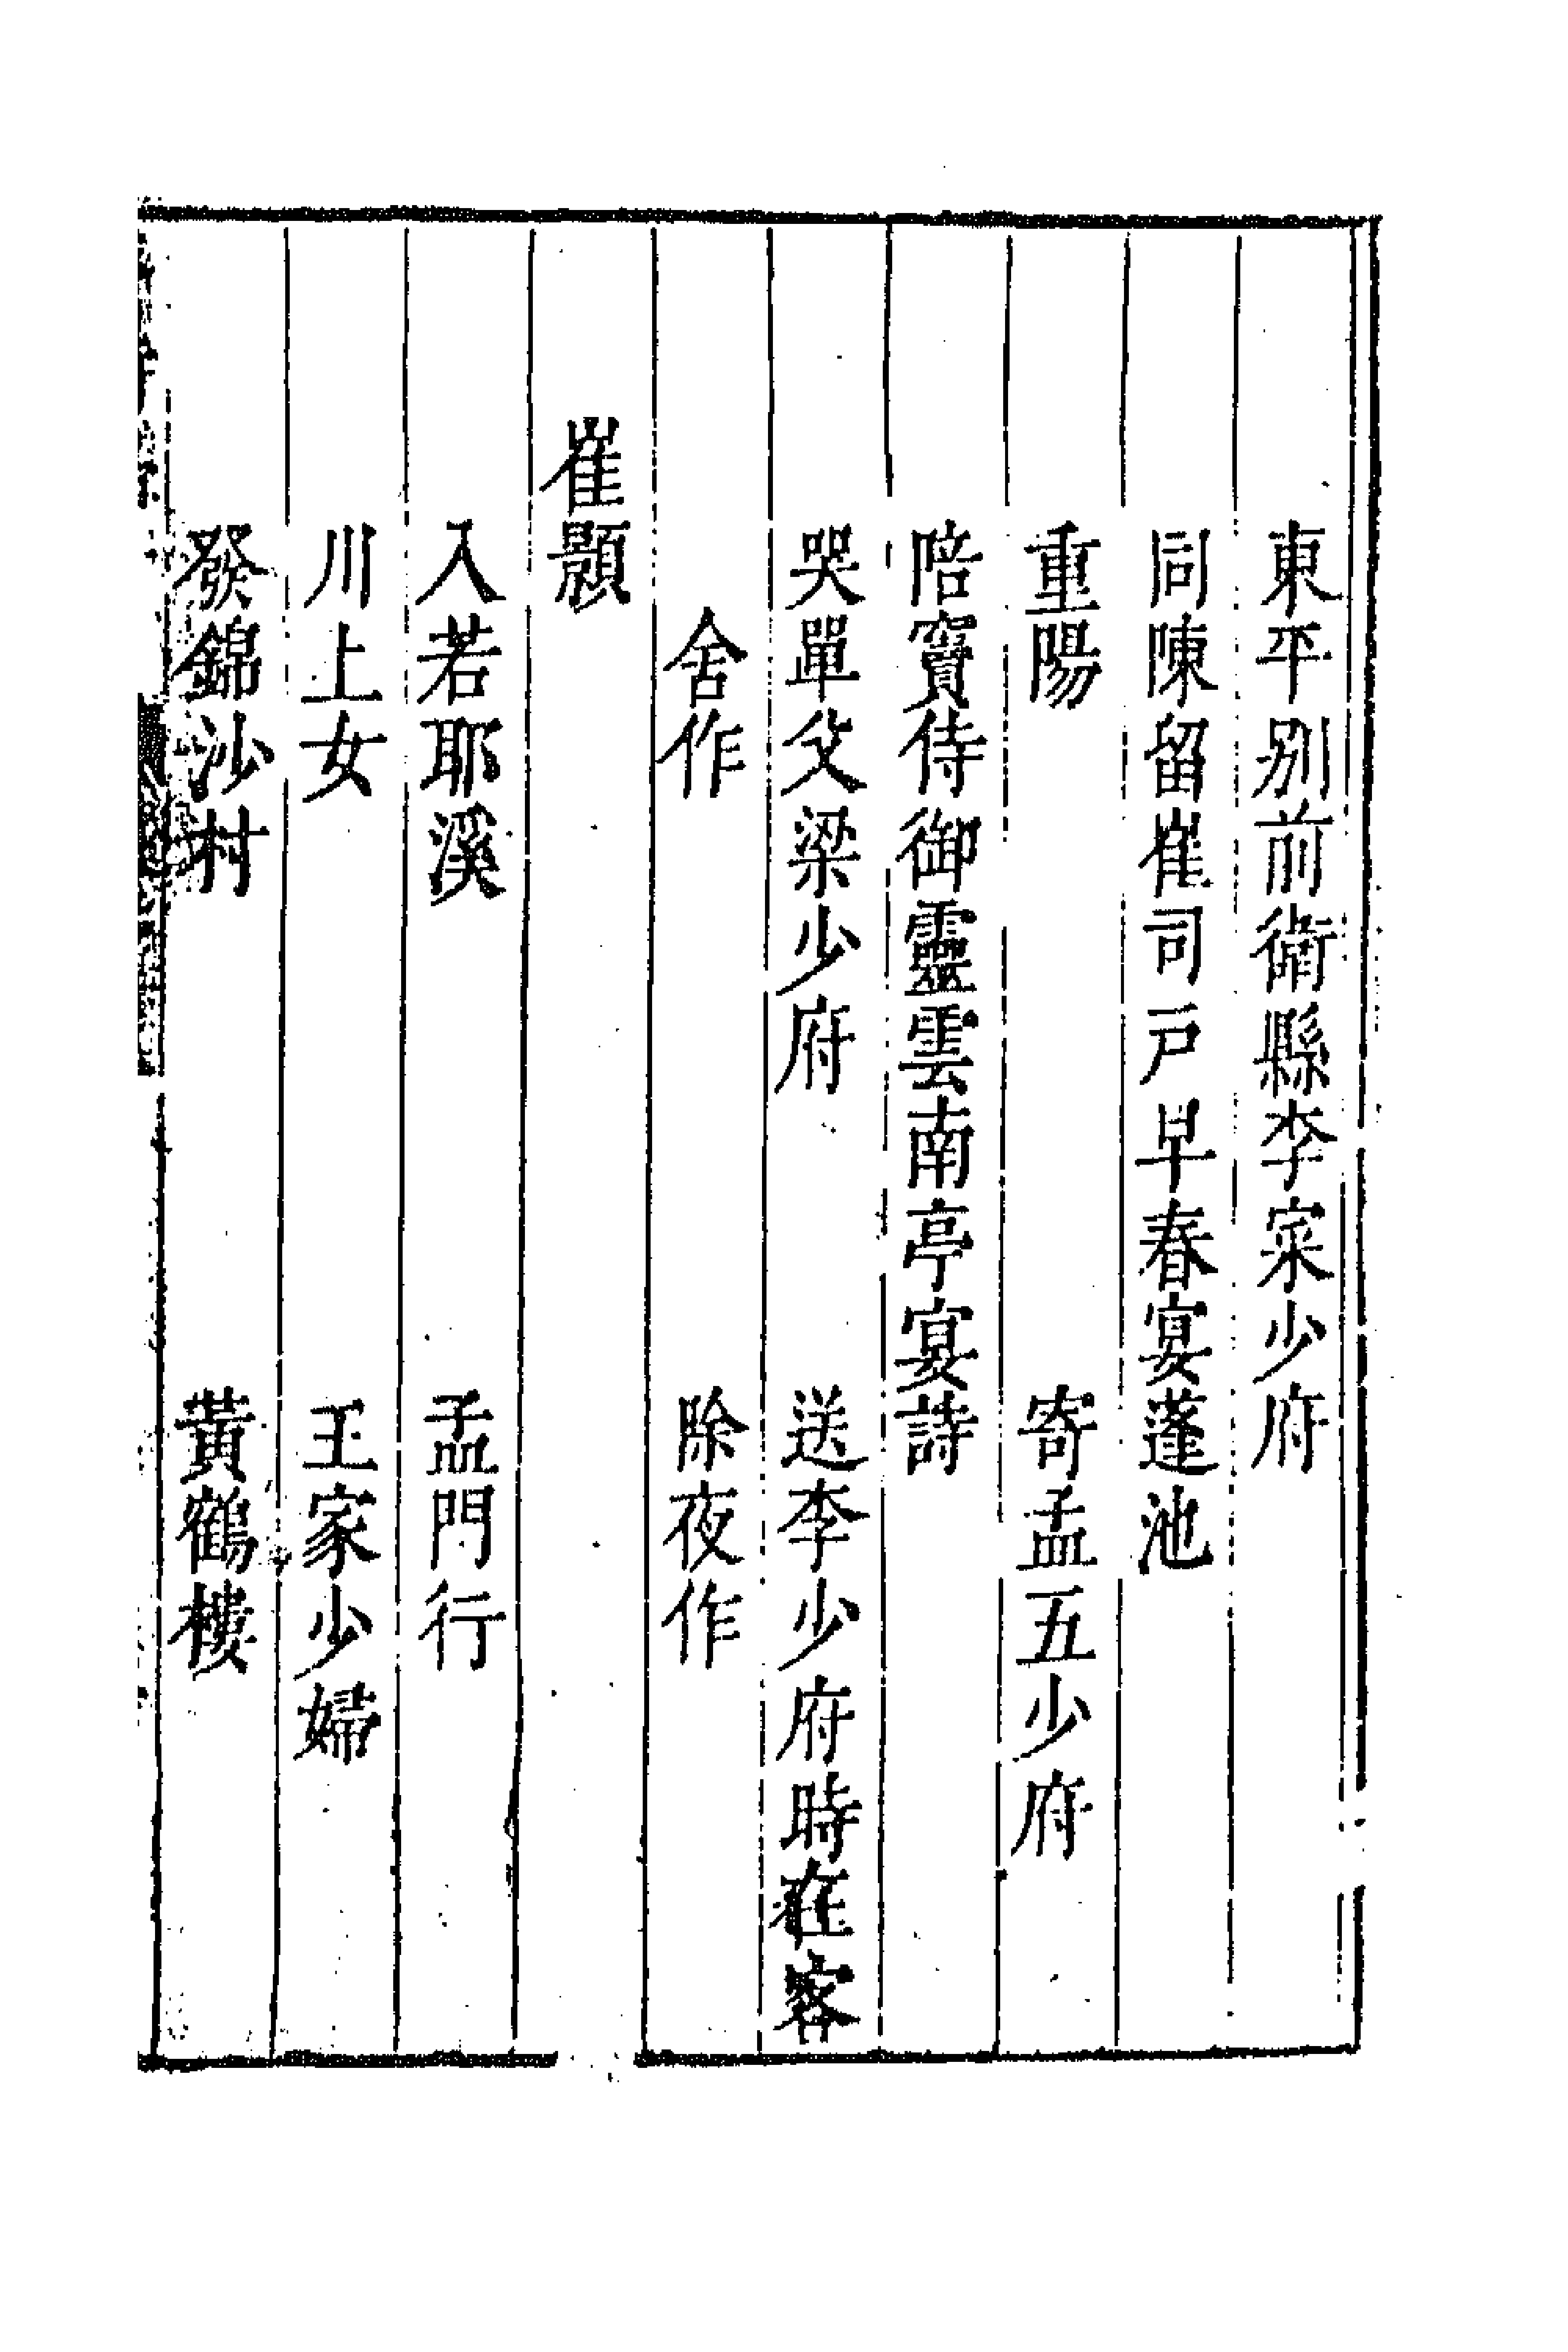 東平別前衛縣李寀少府
同陳留崔司戸早春宴蓬池
重陽　寄孟五少府
陪竇侍御靈雲南亭宴詩
哭單父梁少府　送李少府時在客
舍作　除夜作
崔顥
入若耶溪　孟門行
川上女　王家少婦
發錦沙村　黃鶴樓